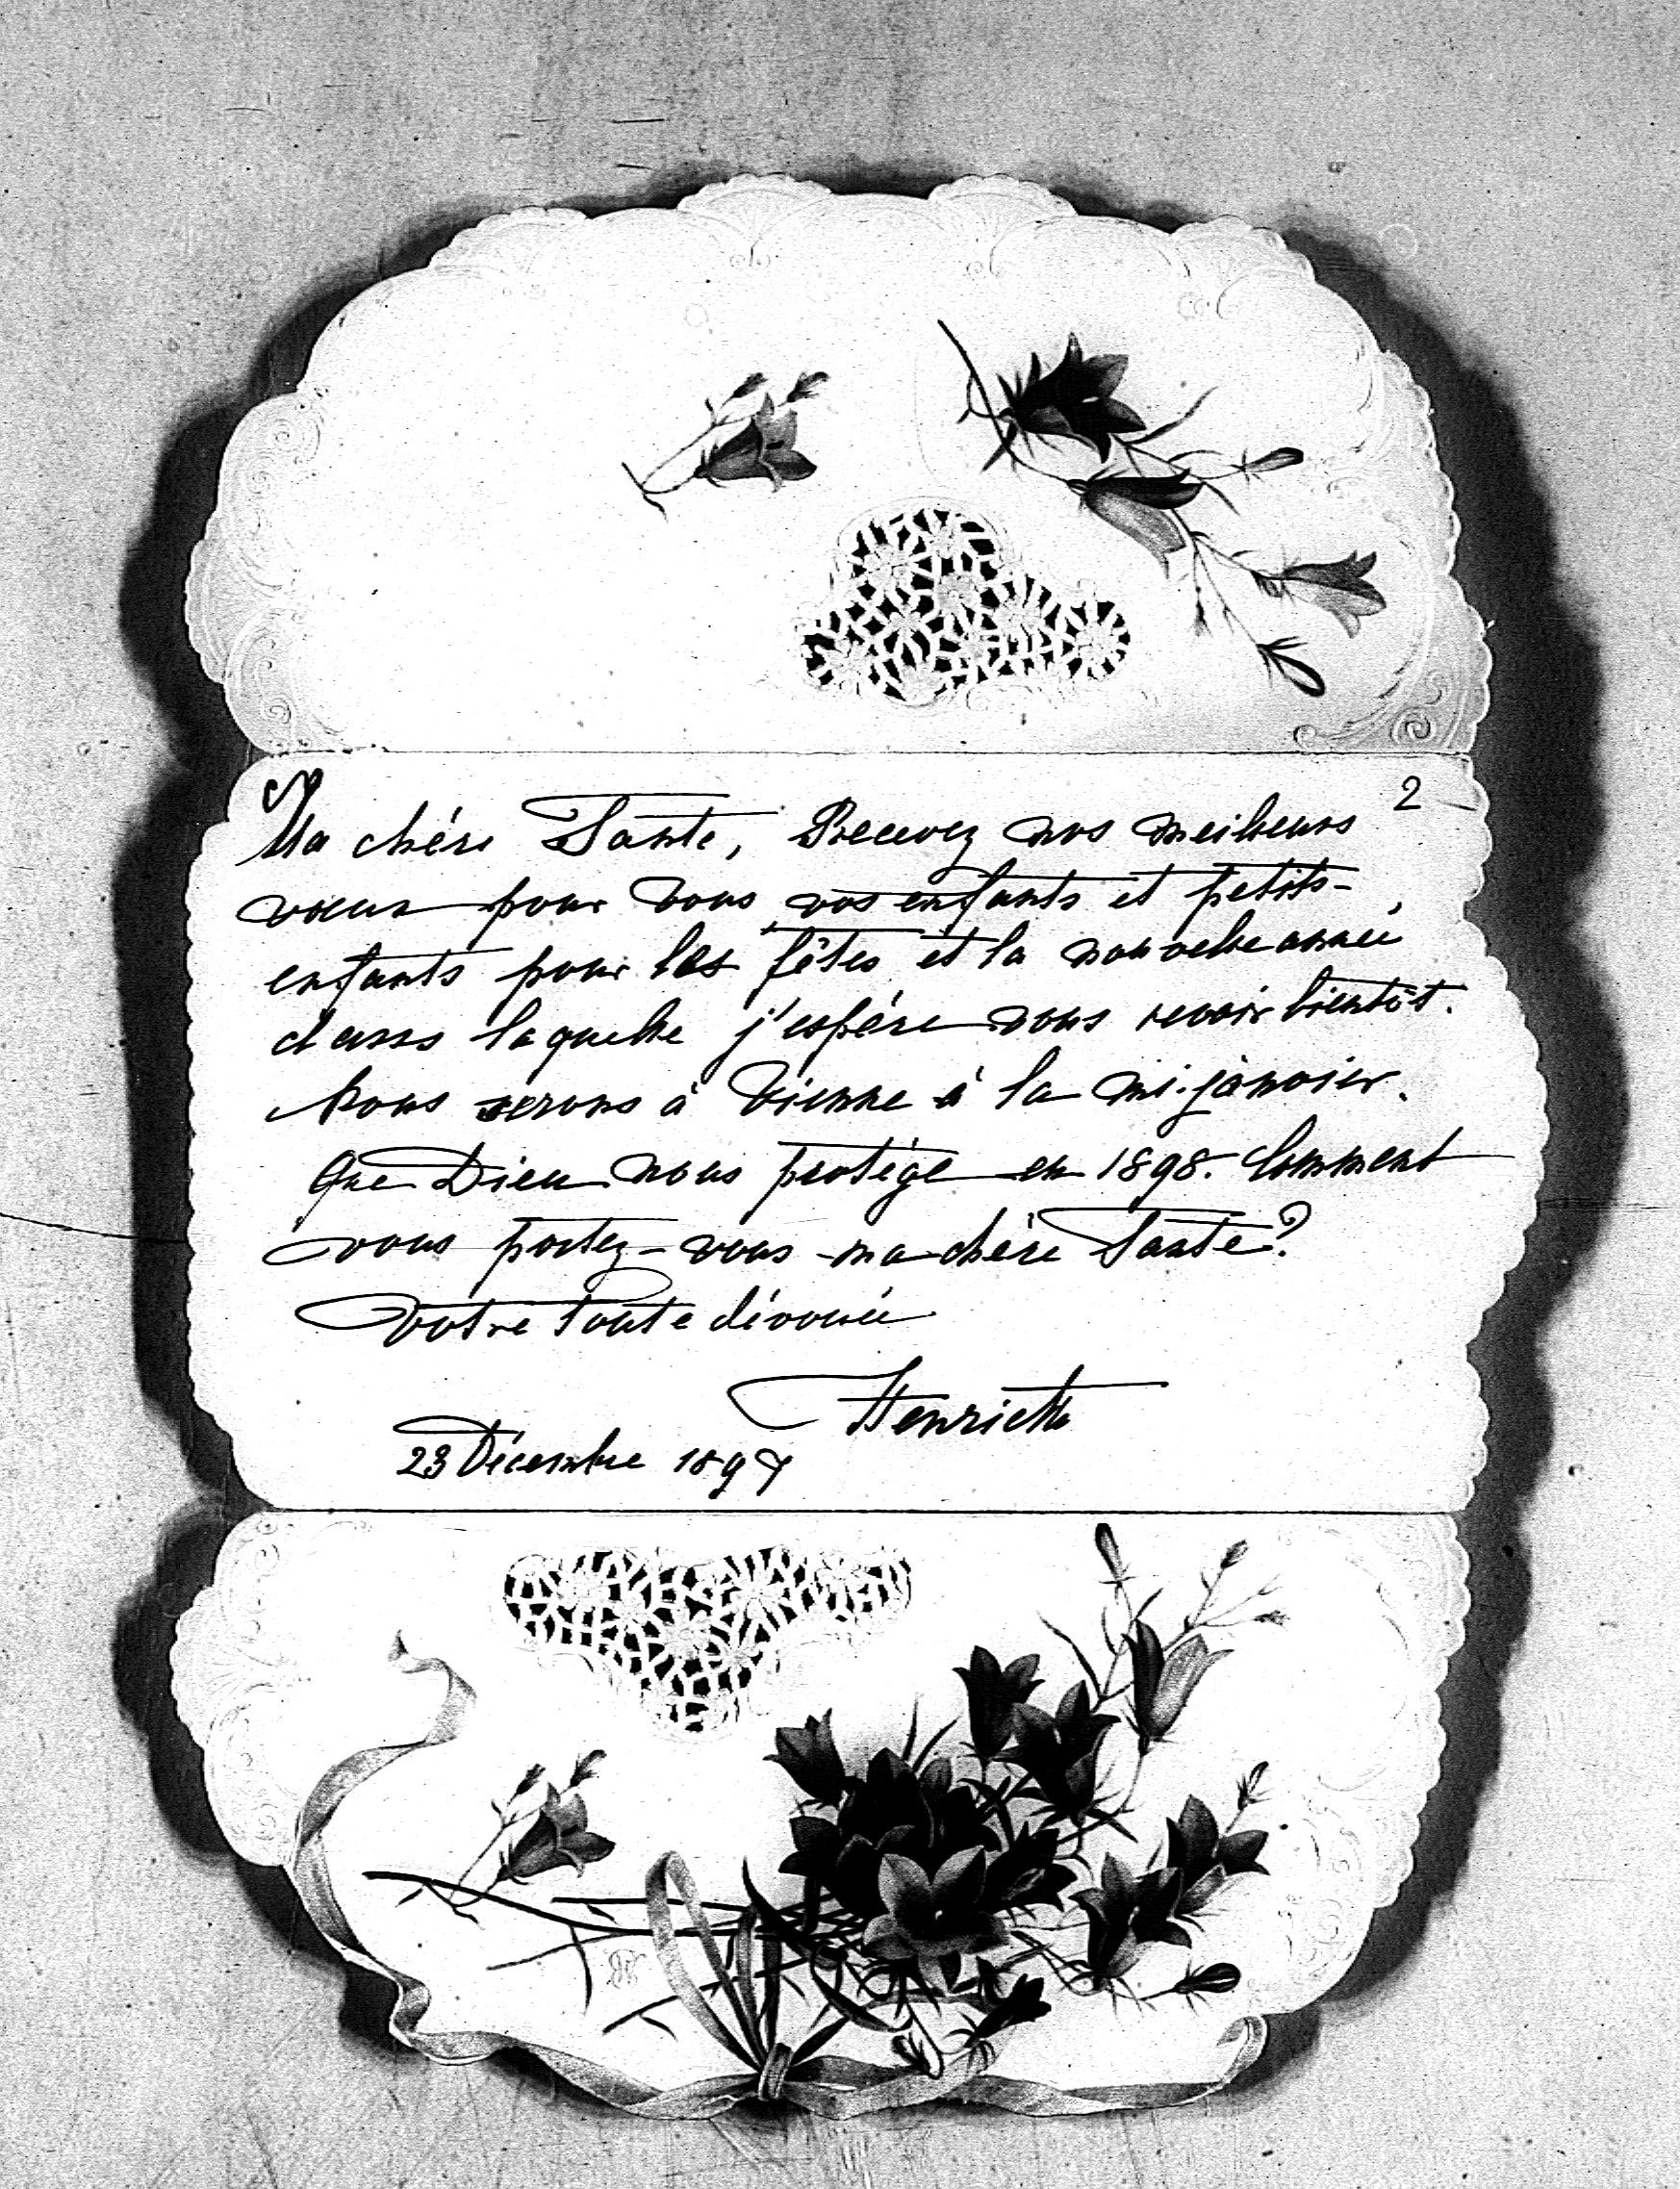 2
Ma chére Tante, Recevez nos meilleurs
vœux pour vous vos enfants et petits-
enfants pour les fêtes et la nouvelle année
dans laquelle j'espére vous revoir bientôt.
Nous serons à Vienne à la mi-janvier.
Que Dieu nous protége en 1898. Comment
vous portez-vous ma chère Tante?
Votre toute dévouée
Henriette
23 Décembre 1897